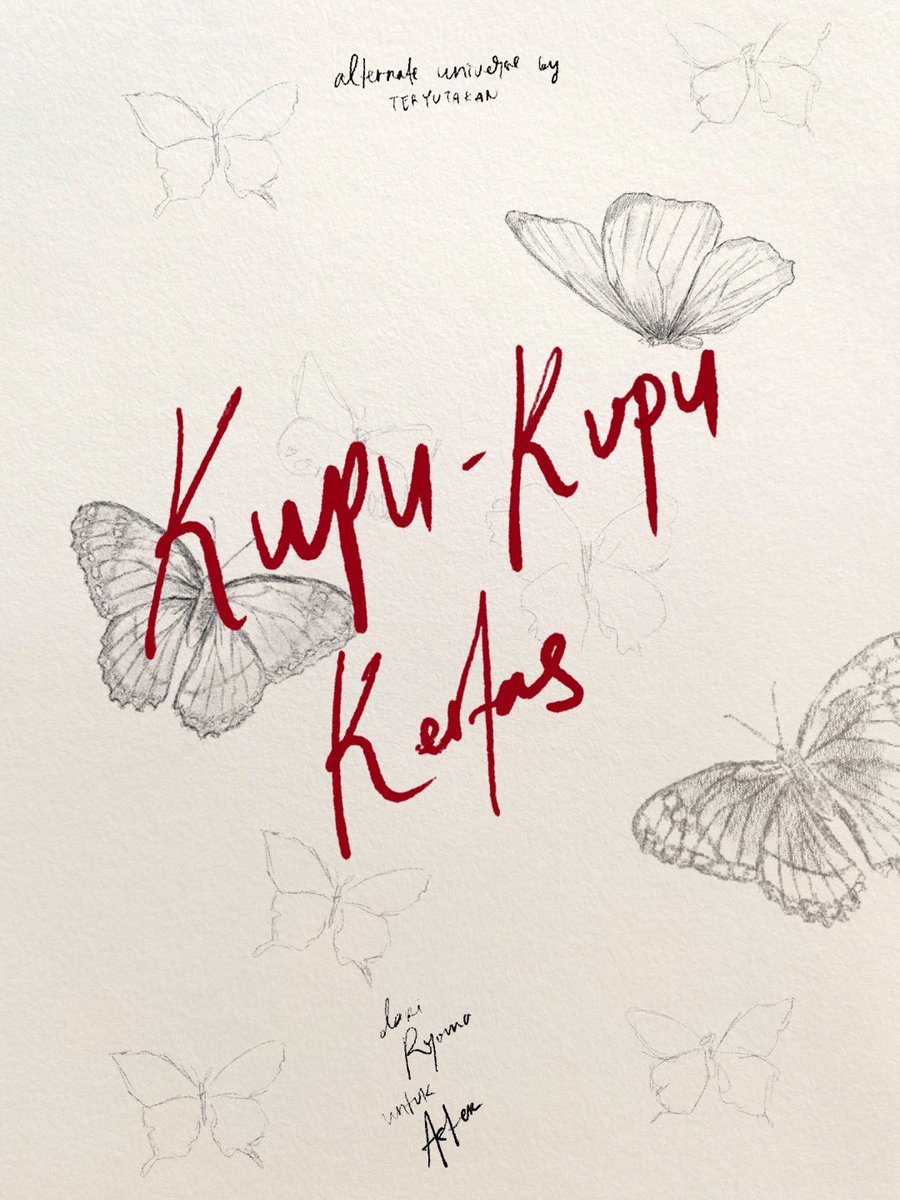 alternate universe by
TERYUTAKAN
Kupu-Kupu
Kertas
dari
Ryoma
untuk
Aster